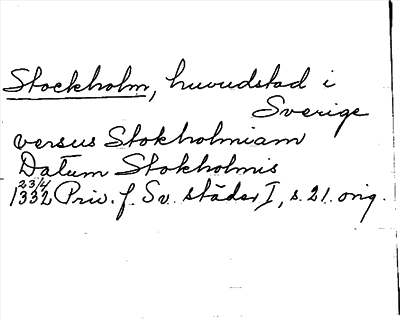 Stockholm, huvudstad i
Sverige
versus Stokholmiam
Datum Stokholmis
23/4
1332 Priv. f. Sv. städer I, s. 21. orig.